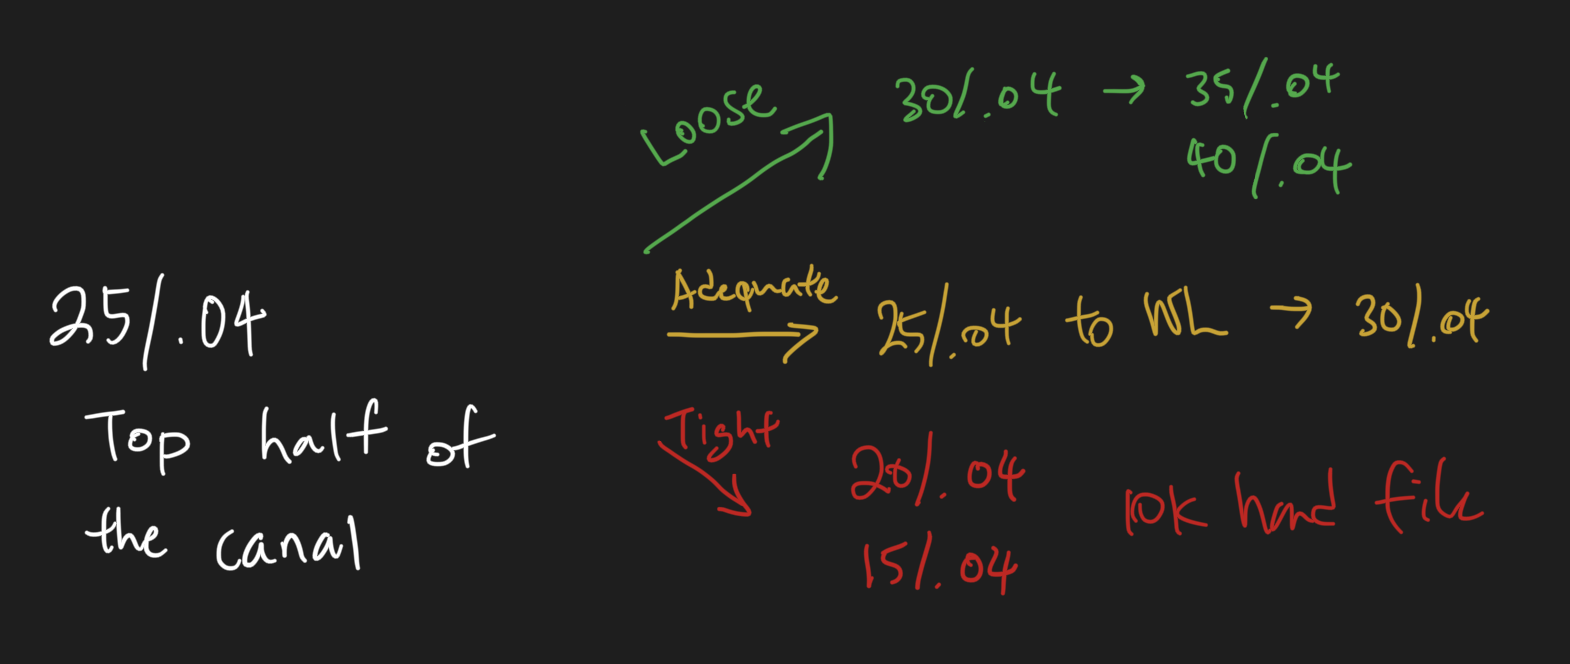 25/.04
Top half of
the canal
Loose
30/.04 → 35/.04
40/.04
Adequate
25/.04 to WL → 30/.04
Tight
20/.04
15/.04
10K hand file